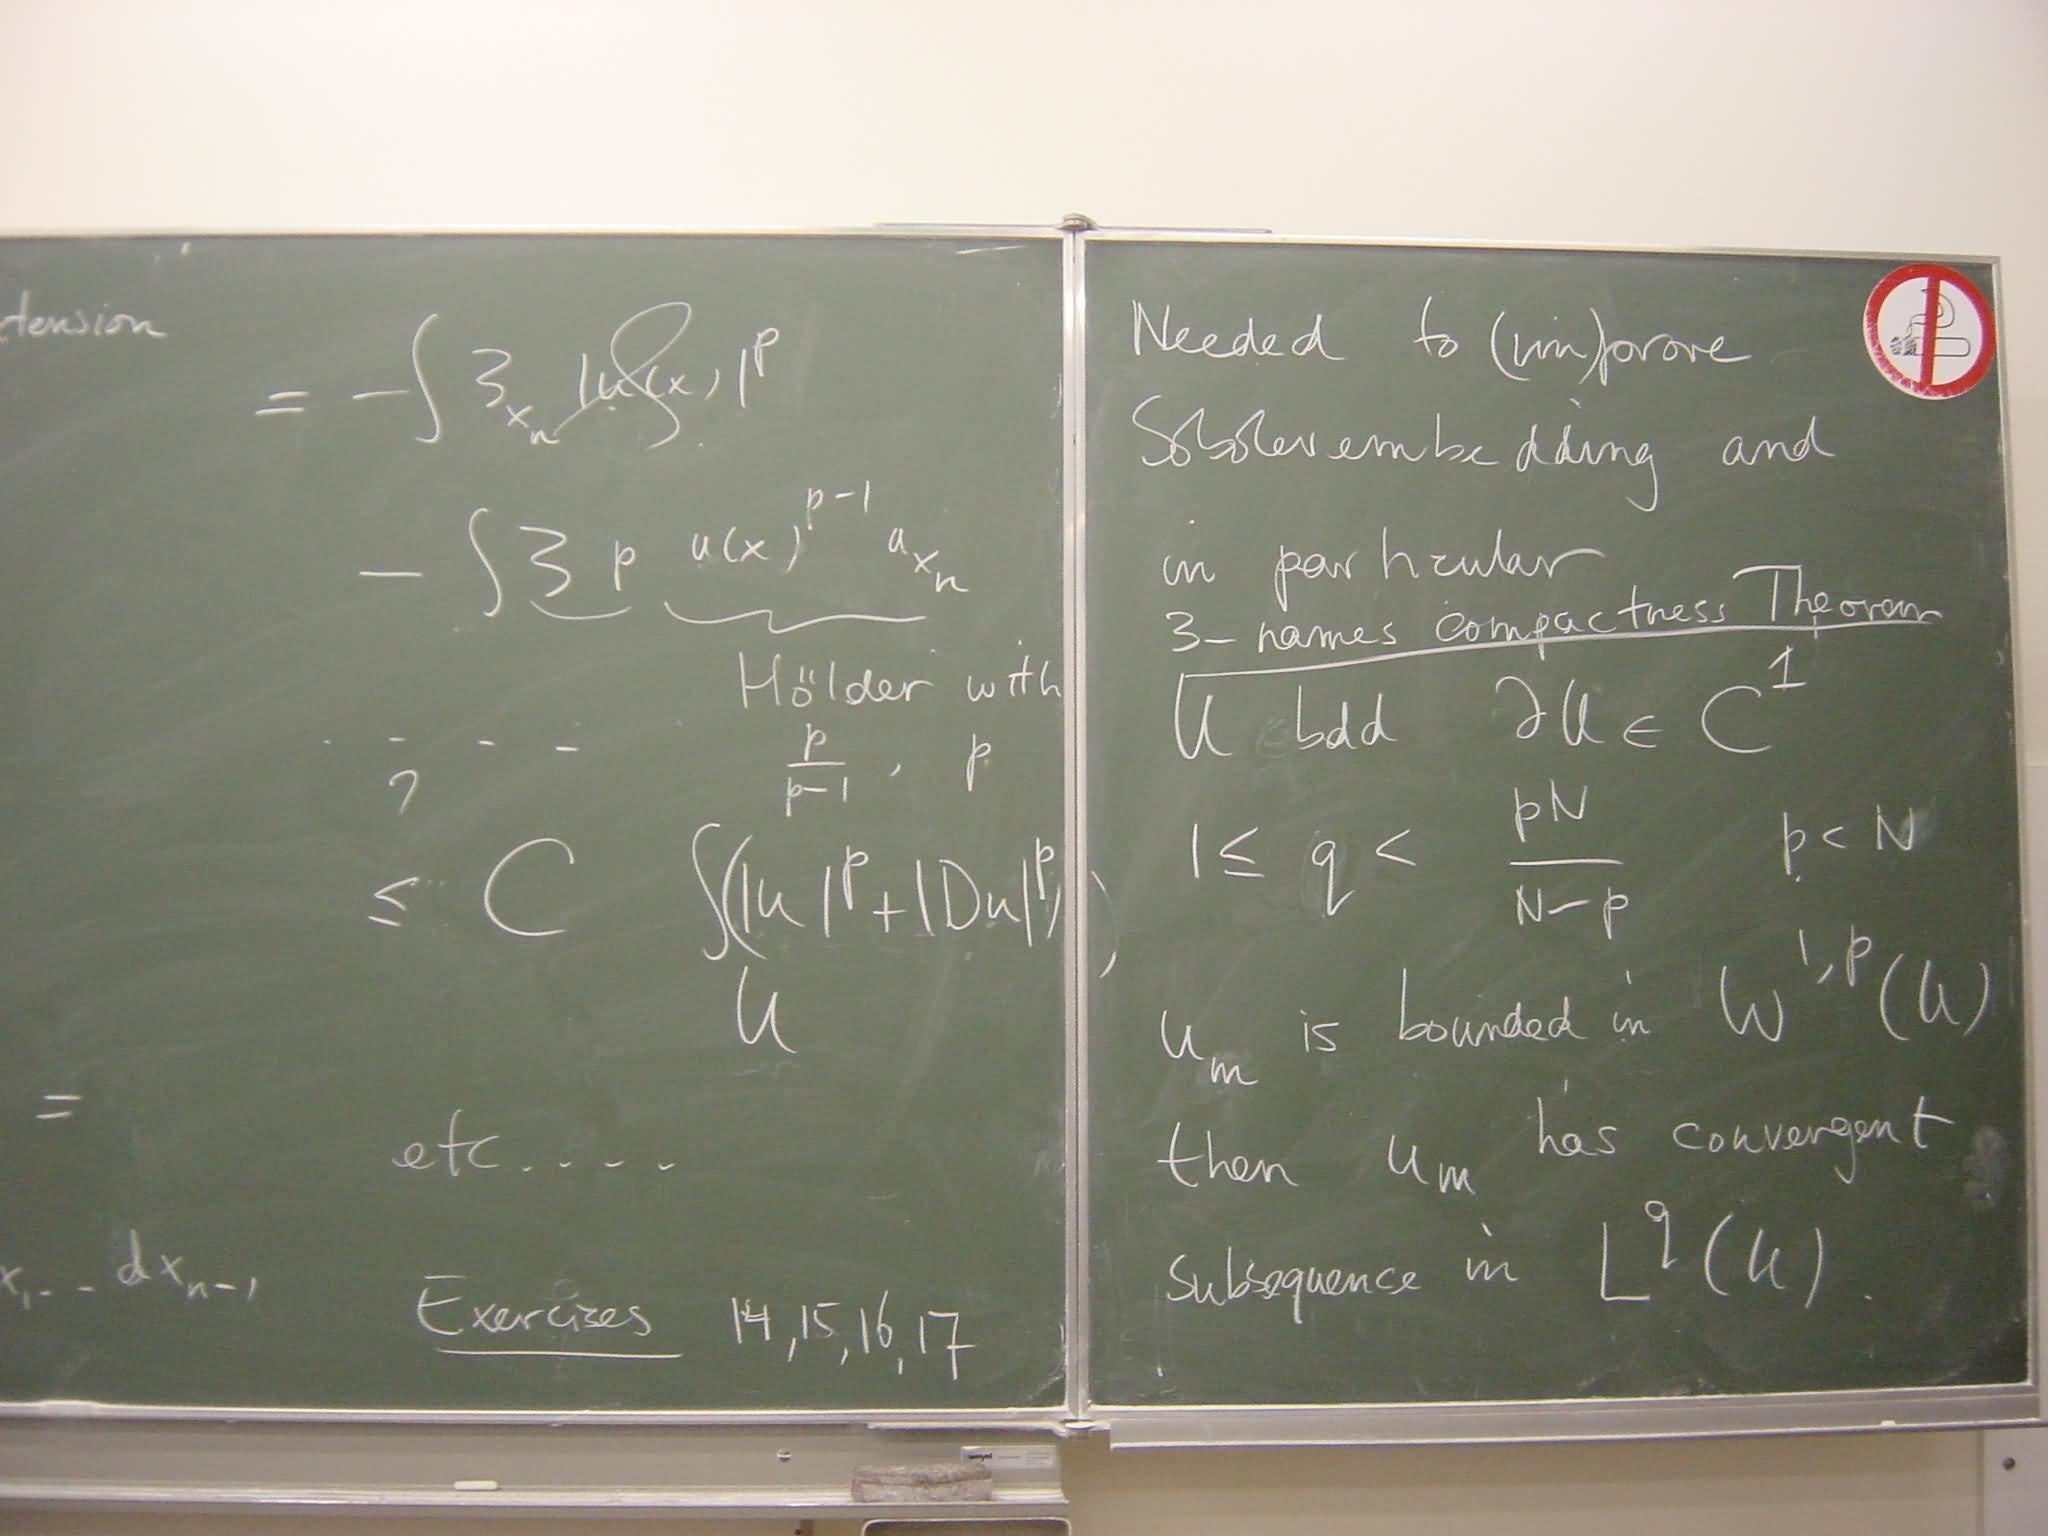 tension
= - ∫ ζ_{x_n} |u(x)|^p
- ∫ ζ p u(x)^{p-1} u_{x_n}
Hölder with
p/(p-1), p
?
≤ C ∫_U (|u|^p + |Du|^p)
=
etc....
x_1 -- dx_{n-1}
Exercises 14, 15, 16, 17
Needed to (im)prove
Sobolevembedding and
in particular
3-names compactness Theorem
U bdd ∂U ∈ C^1
1 ≤ q < pN/(N-p) p < N
u_m is bounded in W^{1,p}(U)
then u_m has convergent
subsequence in L^q(U).